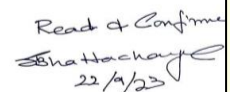 Read & Confirme
SBhattacharye
22/9/23